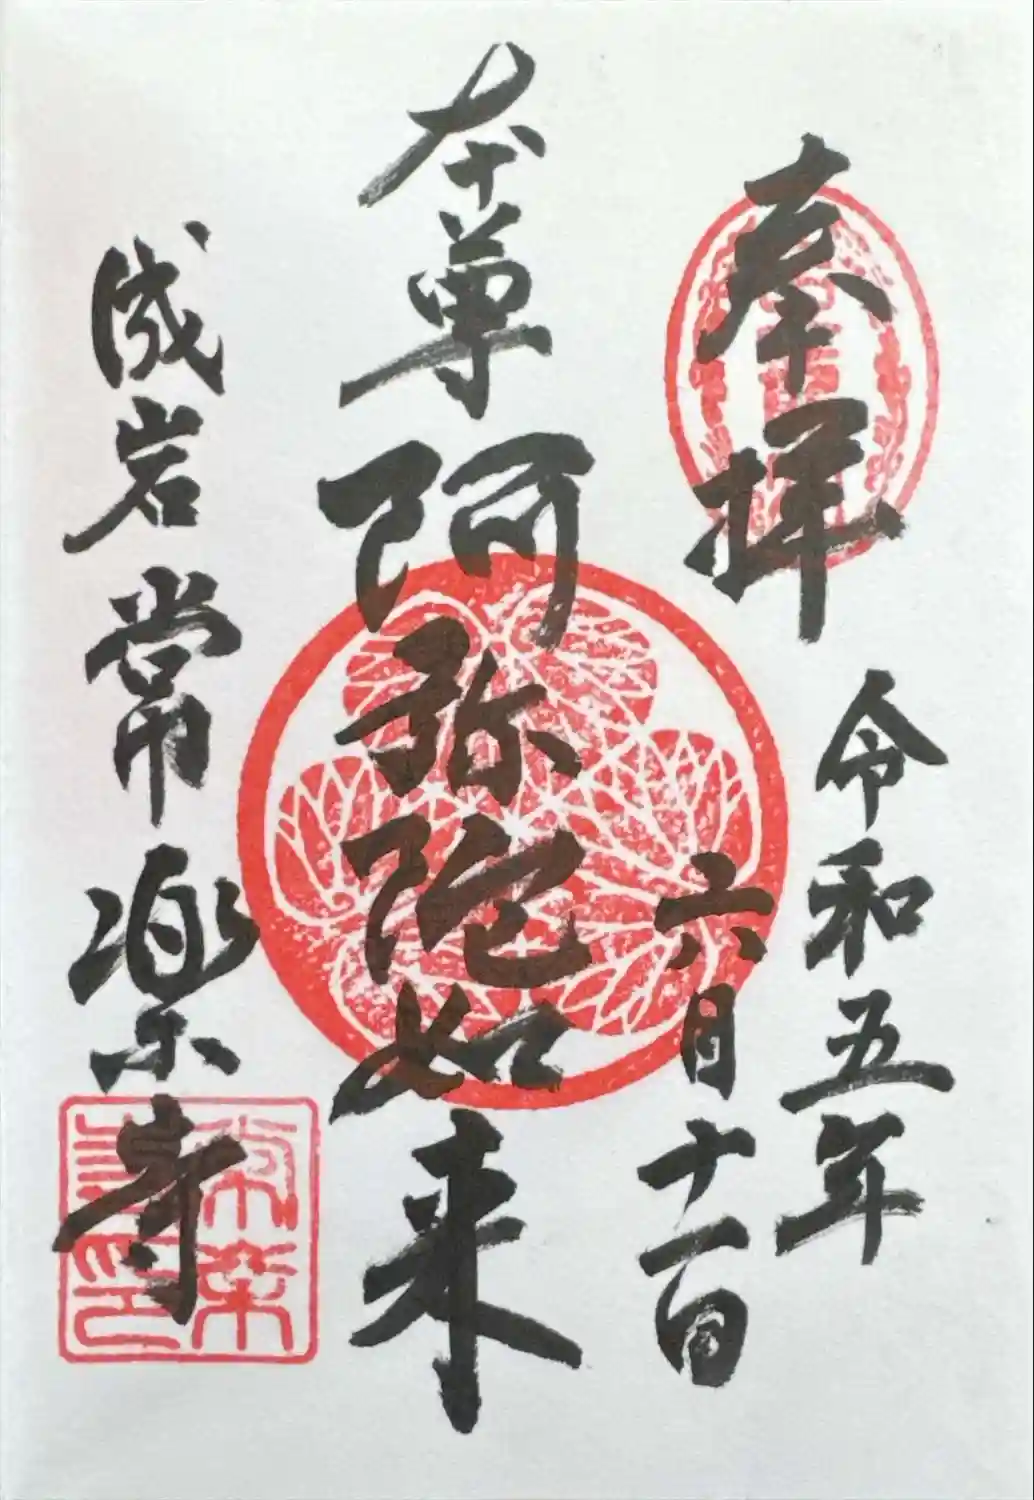 奉拝
令和五年
六月十一日
本尊
阿弥陀如来
成岩常楽寺
常楽寺印